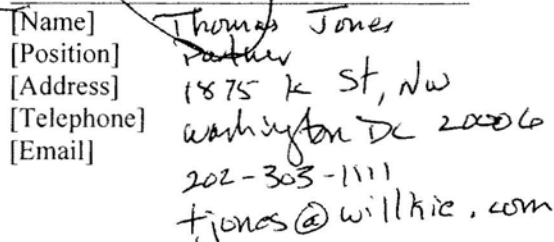 [Name] Thomas Jones
[Position] Partner
[Address] 1875 K St, NW
[Telephone] Washington DC 20006
[Email]
202-303-1111
tjones@willkie.com